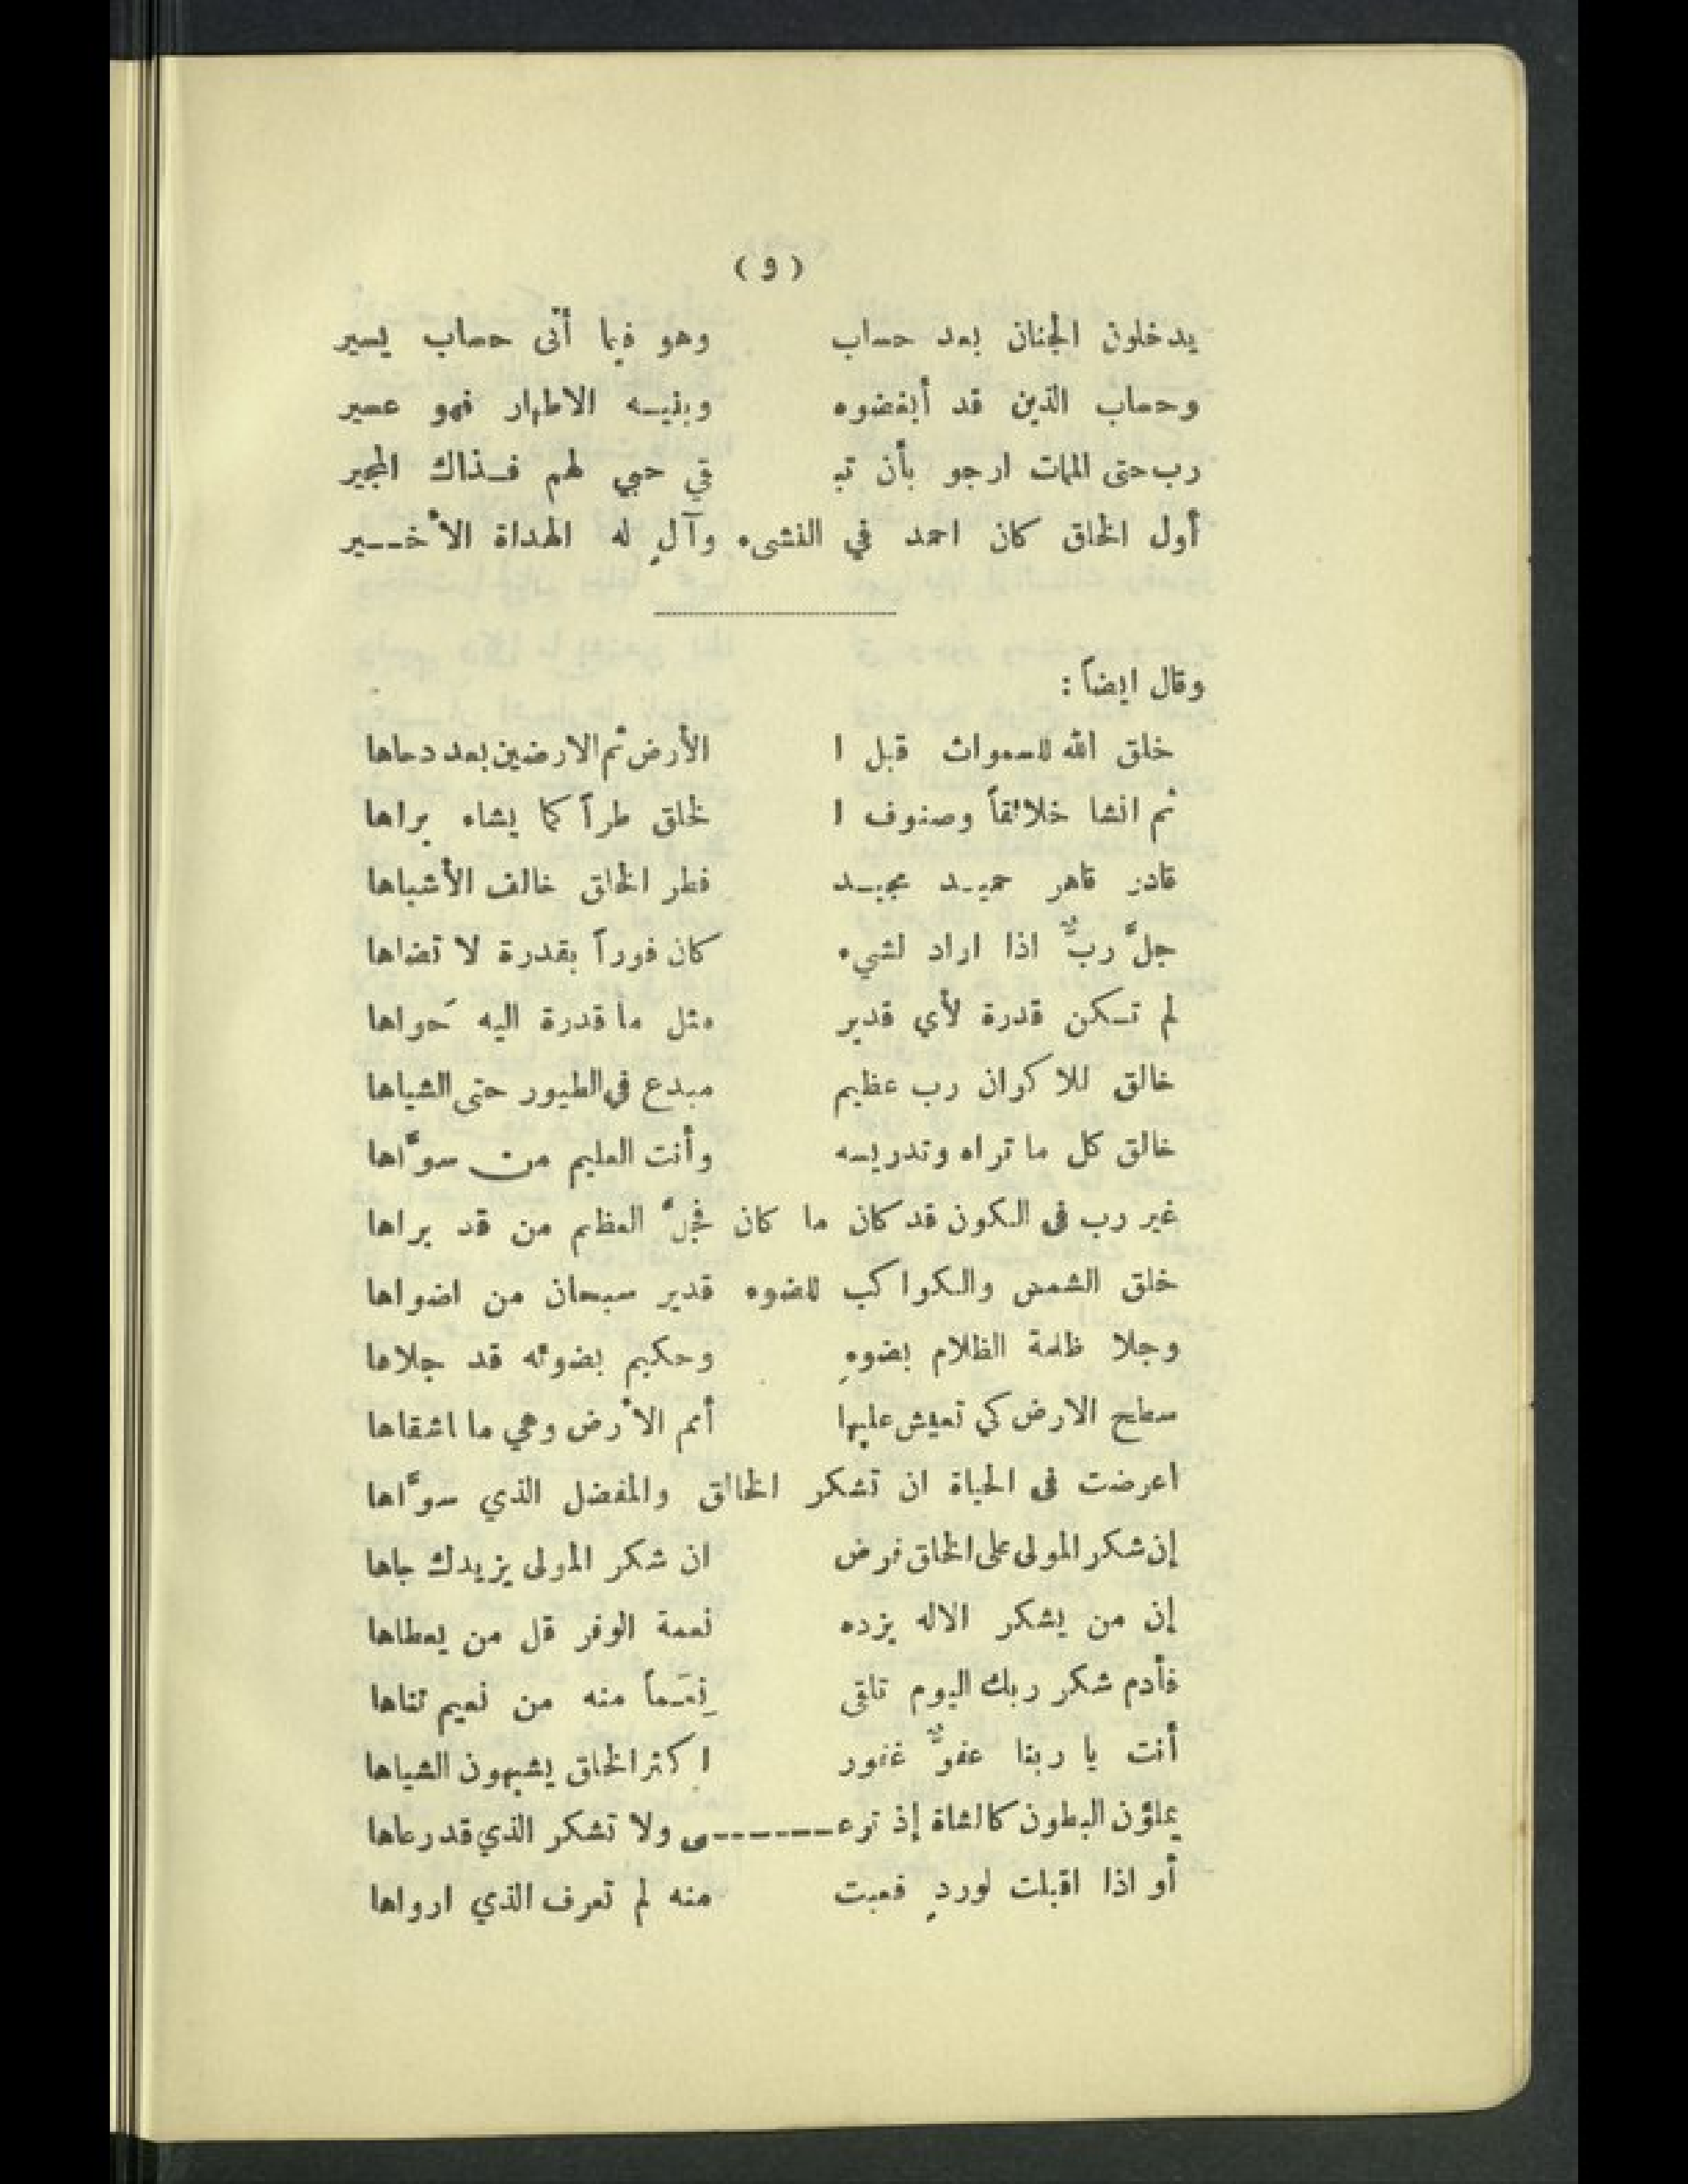 ( و )
يدخلون الجنان بعد حساب وهو فيما أتى حساب يسير
وحساب الذين قد أبغضوه وبنيه الاطهار فهو عسير
رب حتى الممات ارجو بأن تبـ قي حبي لهم فذاك المجير
أول الخلق كان احمد في النشىء وآلٍ له الهداة الأخير
وقال ايضاً :
خلق الله للسموات قبل ا الأرض ثم الارضين بعد دحاها
ثم انشا خلائقاً وصنوف ا لخلق طراً كما يشاء براها
قادر قاهر حميد مجيد فطر الخلق خالف الأشباها
جلَّ ربٌّ اذا اراد لشيء كان فوراً بقدرة لا تضاها
لم تكن قدرة لأي قدير مثل ما قدرة اليه حَواها
خالق للاكوان رب عظيم مبدع في الطيور حتى الشياها
خالق كل ما تراه وتدريسه وأنت العليم من سوَّاها
غير رب في الكون قد كان ما كان فجلَّ العظيم من قد براها
خلق الشمس والكواكب للضوء قدير سبحان من اضواها
وجلا ظلمة الظلام بضوءٍ وحكيم بضوئه قد جلاها
سطح الارض كي تعيش عليها أمم الأرض وهي ما اشقاها
اعرضت في الحياة ان تشكر الخالق والمفضل الذي سوَّاها
إن شكر المولى على الخلق فرض ان شكر المولى يزيدك جاها
إن من يشكر الاله يزده نعمة الوفر قل من يعطاها
فأدم شكر ربك اليوم تلقى نِعَماً منه من نعيم تناها
أنت يا ربنا عفوٌّ غفور اكثر الخلق يشبهون الشياها
يملؤن البطون كالشاة إذ ترعـــى ولا تشكر الذي قد رعاها
أو اذا اقبلت لوردٍ فعبت منه لم تعرف الذي ارواها